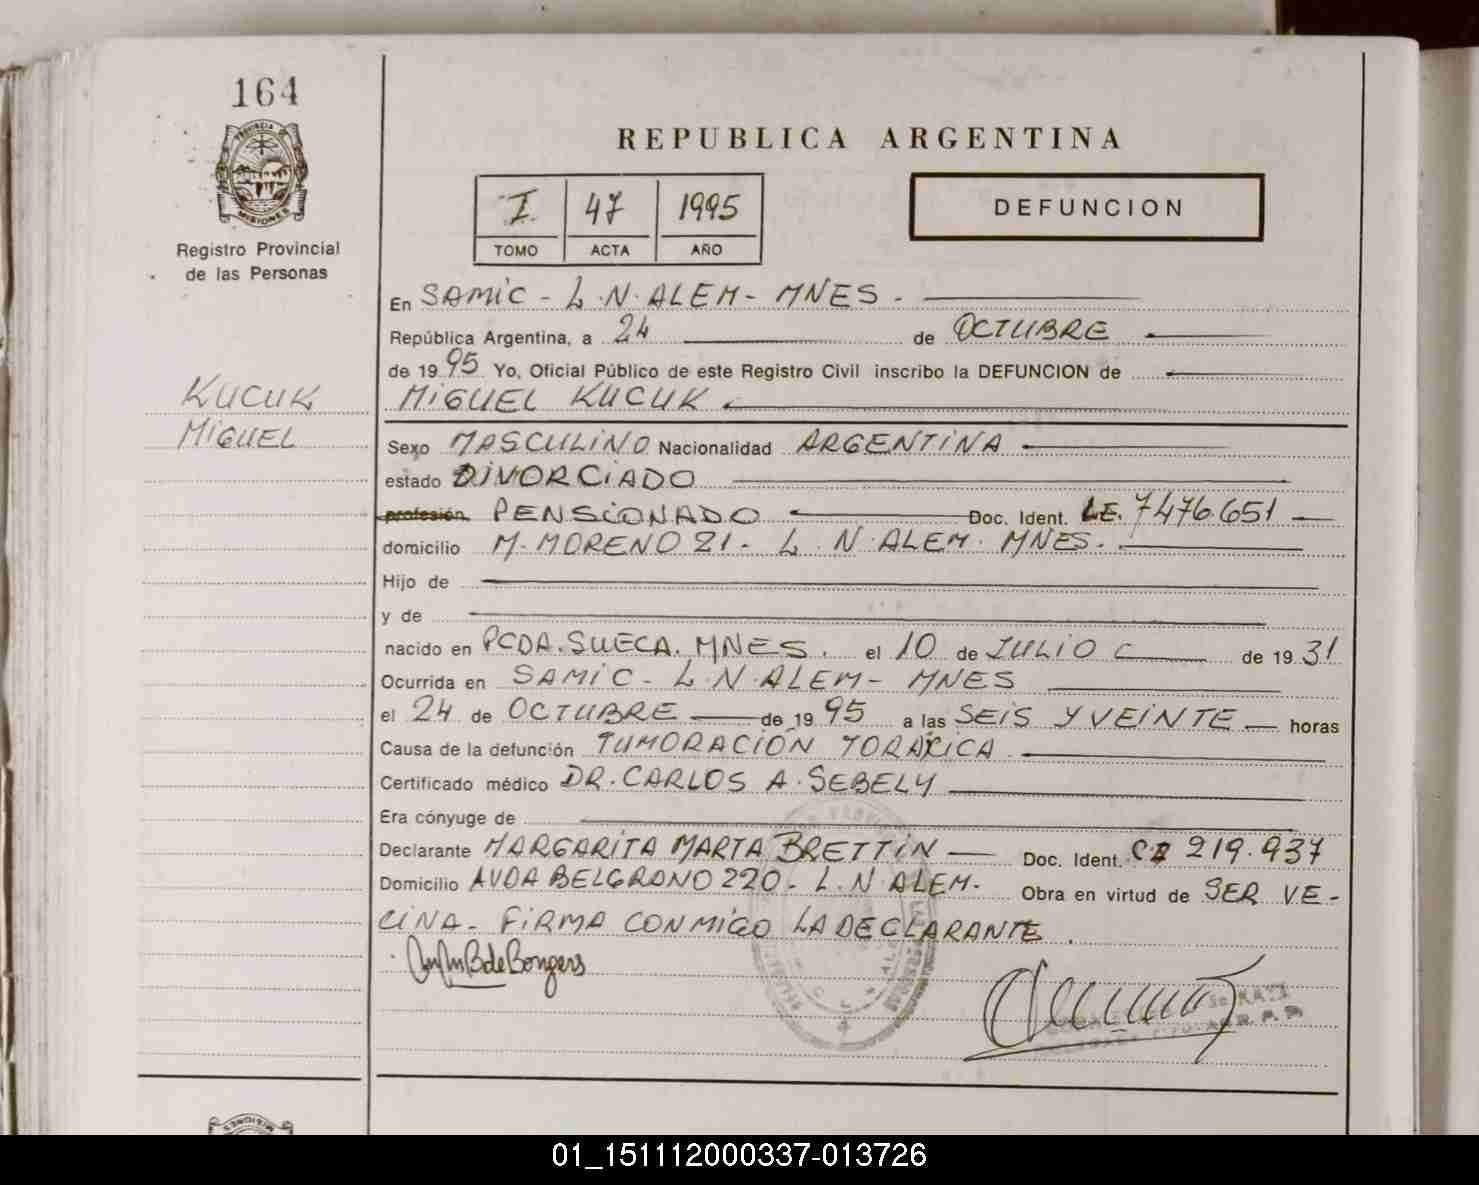 164
PROVINCIA DE
MISIONES
Registro Provincial
de las Personas
REPUBLICA ARGENTINA
I 47 1995
TOMO ACTA AÑO
DEFUNCION
En SAMIC - L.N. ALEM - MNES.
República Argentina, a 24 de OCTUBRE
de 19 95 Yo, Oficial Público de este Registro Civil inscribo la DEFUNCION de
KUCUK
MIGUEL
MIGUEL KUCUK
Sexo MASCULINO Nacionalidad ARGENTINA
estado DIVORCIADO
profesión PENSIONADO Doc. Ident. LE. 7476.651
domicilio M. MORENO 21 - L.N. ALEM. MNES.
Hijo de
y de
nacido en PCDA. SUECA. MNES. el 10 de JULIO de 19 31
Ocurrida en SAMIC - L.N. ALEM - MNES
el 24 de OCTUBRE de 19 95 a las SEIS Y VEINTE horas
Causa de la defunción TUMORACIÓN TORAXICA
Certificado médico DR. CARLOS A. SEBELY
Era cónyuge de
Declarante MARGARITA MARTA BRETTIN Doc. Ident. CI 219.937
Domicilio AVDA BELGRANO 220 - L.N. ALEM. Obra en virtud de SER VE-
CINA - FIRMA CONMIGO LA DECLARANTE.
B de Bongers
01_151112000337-013726